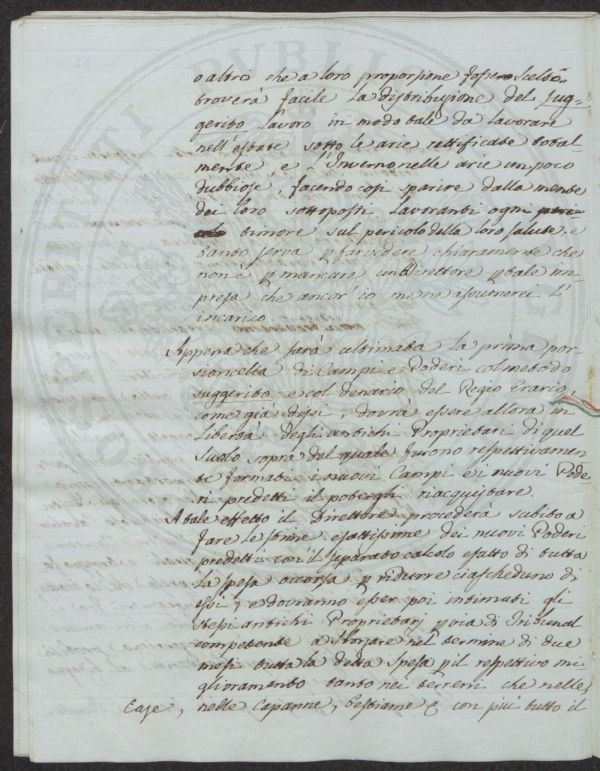 o altro che a loro proporzione fosse scelto,
troverà facile la distribuzione del sug-
gerito lavoro in modo tale da lavorare
nell'estate sotto le arie rettificate total-
mente, e l'Inverno nelle arie un poco
dubbiose, facendo così sparire dalla mente
dei loro sottoposti lavoranti ogni
timore sul pericolo della loro salute, e
tanto serva p far vedere chiaramente che
non è p mancare un Direttore p tale im-
presa che ancor'io me ne assumerei l'
incarico.
Appena che sarà ultimata la prima por-
zioncella di Campi e Poderi col metodo
suggerito e col denario del Regio Erario,
come già dissi, dovrà essere allora in
libertà degli antichi Proprietari di quel
suolo sopra del quale furono respettivamen-
te formati i nuovi Campi e i nuovi Pode-
ri predetti il poterli riacquistare.
A tale effetto il Direttore procederà subito a
fare le stime esattissime dei nuovi Poderi
predetti con il separato calcolo esatto di tutta
la spesa occorsa p ridurre ciascheduno di
essi, e dovranno esser poi intimati gli
stessi antichi Proprietarj p via di Tribunal
competente a sborzare nel termine di due
mesi tutta la detta spesa p il respettivo mi-
glioramento tanto nei terreni che nelle
Case, nelle Capanne, bestiame e con più tutto il
OSPERITATI PVBLIC